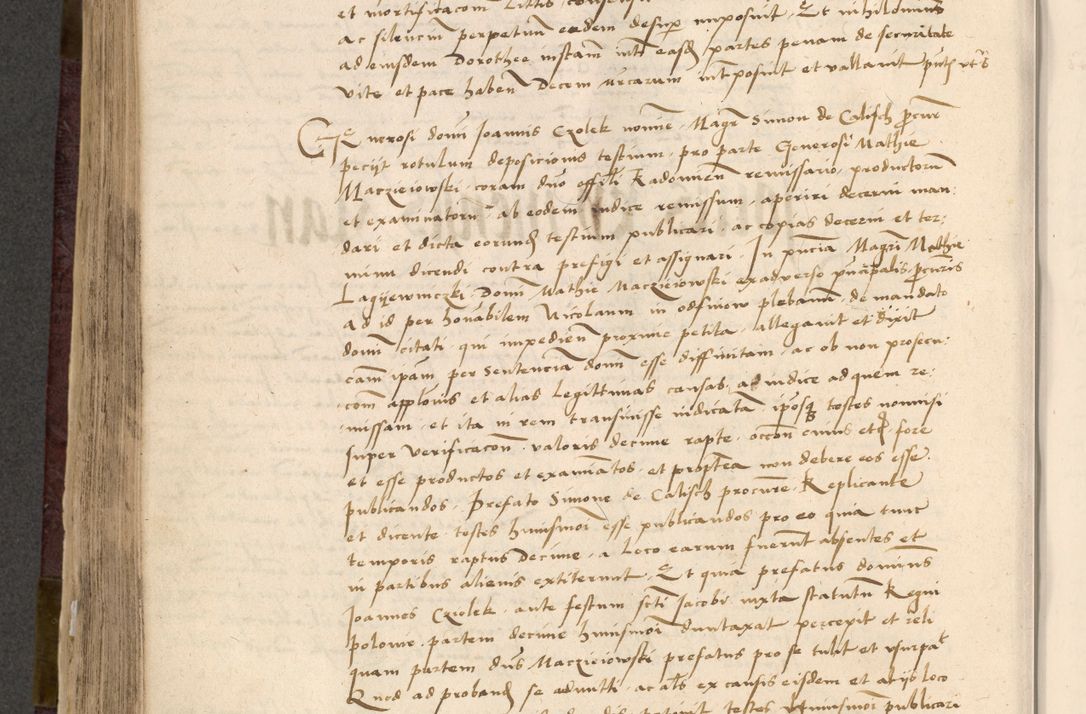 et mortificacom Littis
ac silencium perpetuum eadem desuper imposuit, Et nihilominus
ad eiusdem Dorothee instam inter easdem partes penam de securitate
vite et pace habend Decem mrcarum interposuit et vallavit
Generosi domi Joannis Czolek nomine, Magr Simon de Calisch procur
peciit rotulum deposicionis testium, pro parte Generosi Mathie
Macziejowski, coram dno offili Radomien remissario, productorum
et examinatorum, ab eodem iudice remissum, aperiri decerni man:
dari et dicta eorund testium publicari, ac copias decerni et ter:
minu dicendi contra prefigi et assignari. In pncia Magri Mathie
Lagijewniczki, Domi Mathie Macziejowski exadverso principalis procuris
ad id per honabilem Nicolaum in odsinow plebanum, de mandato
domi citati, qui impedien proxime petita, allegavit et dixit
cam ipam per Sentencia domi esse diffinitam, ac ob non prosecu:
com applonis et alias Legittimas causas, ad iudice ad quem re:
missam, et ita in rem transivisse iudicata, iposq testes nonnisi
super verificacon valoris decime rapte, occon cuius etc, fore
et esse productos et examiatos, et proptea non debere eos esse
publicandos, Prefato Simone de Calisch procure, Replicante
et dicente, testes huiusmoi esse publicandos pro eo quia tunc
temporis raptus Decime, a Loco earum fuerunt absentes et
in partibus alienis extiterunt, Et quia prefatus dominus
Joannes Czolek, ante festum scti Jacobi, iuxta statutum Regni
Polonie, partem decime huiusmoi duntaxat percepit et reli
quam partem dns Macziejowski prefatus pro se tulit et usurpa
Quod ad proband se admitti, ac als ex causis eisdem et alijs loco
testes huiusmoi publicari